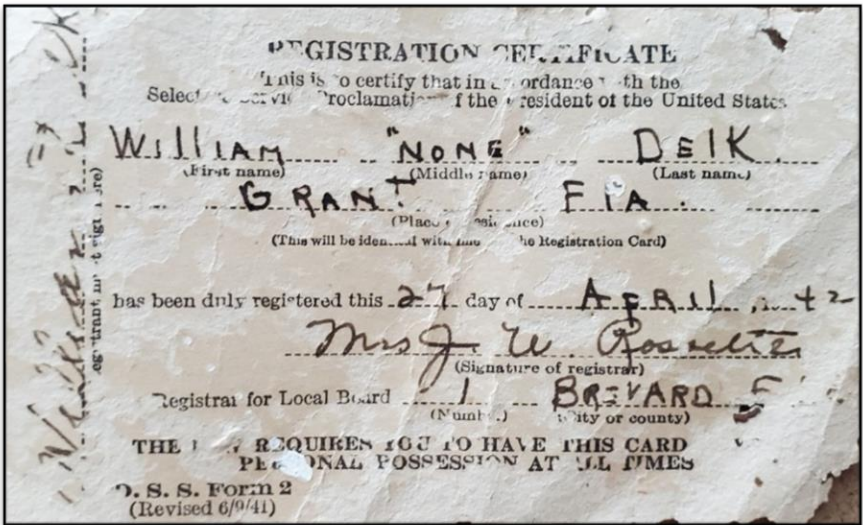 REGISTRATION CERTIFICATE
This is to certify that in accordance with the
Selective Service Proclamation of the President of the United States
WILLIAM "NONE" DEIK
(First name) (Middle name) (Last name)
GRANT FLA.
(Place of residence)
(This will be identical with line the Registration Card)
has been duly registered this 27 day of APRIL 42
Mrs J. W.
(Signature of registrar)
Registrar for Local Board 1 BREVARD F
(Number) (City or county)
THE LAW REQUIRES YOU TO HAVE THIS CARD
PERSONAL POSSESSION AT ALL TIMES
D. S. S. Form 2
(Revised 6/9/41)